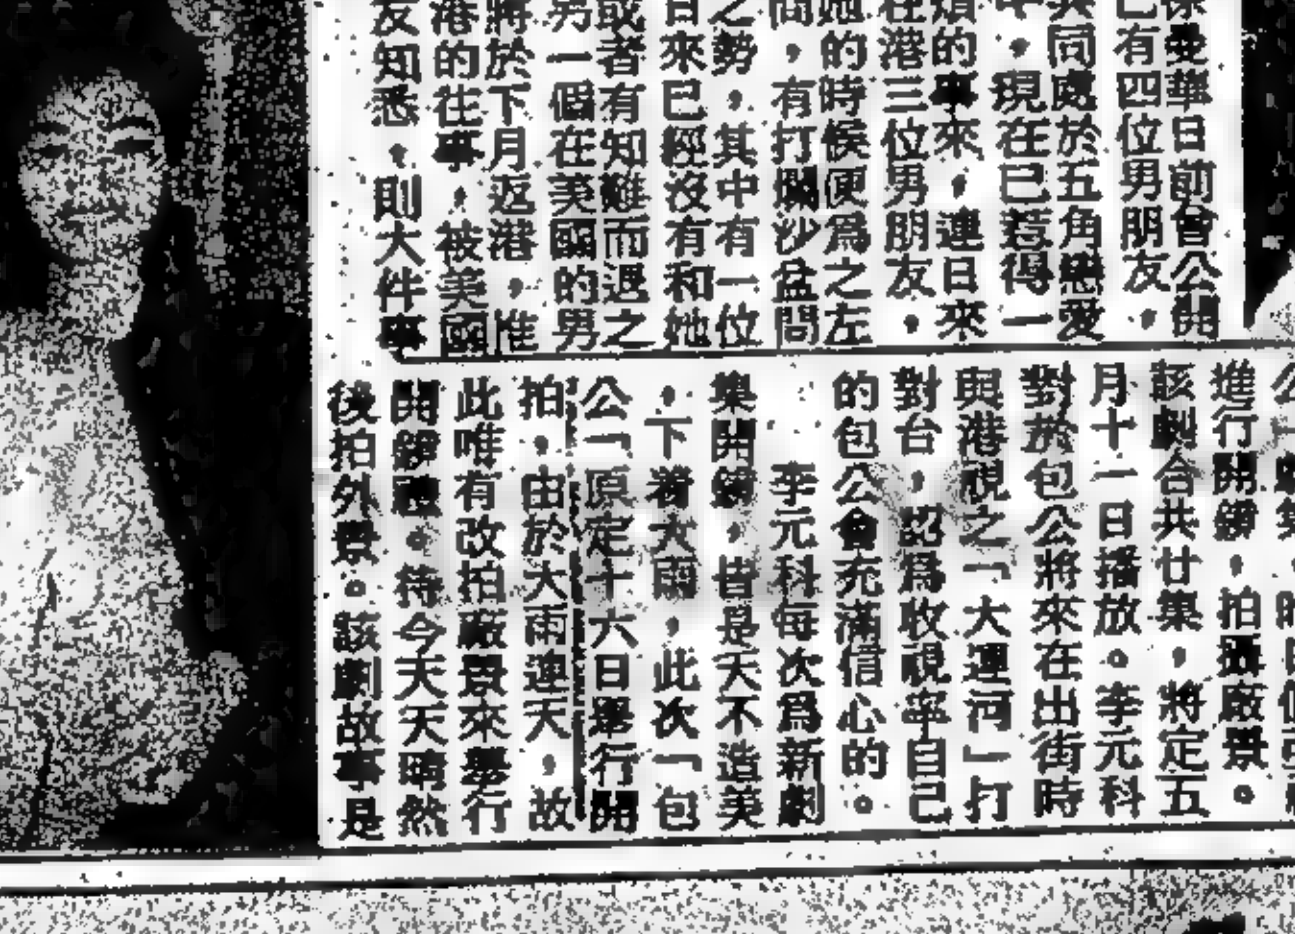 日前曾公開
已有四位男朋友，
共同處於五角戀愛
，現在已惹得一
煩的事來，連日來
在港三位男朋友，
她的時候便為之左
，有打爛沙盆問
之勢，其中有一位
日來已經沒有和她
或者有知難而退之
另一個在美國的男
將於下月返港，惟
港的往事，被美國
友知悉，則大件事
進行開鏡，拍攝廠景。
該劇合共廿集，將定五
月十一日播放。李元科
對於包公將來在出街時
與港視之「大運河」打
對台，認為收視率自己
的包公會充滿信心的。
李元科每次為新劇
集開鏡，皆是天不造美
，下着大雨，此次「包
公「原定十六日舉行開
拍，由於大雨連天，故
此唯有改拍廠景來舉行
開鏡禮。待今天天晴然
後拍外景。該劇故事是